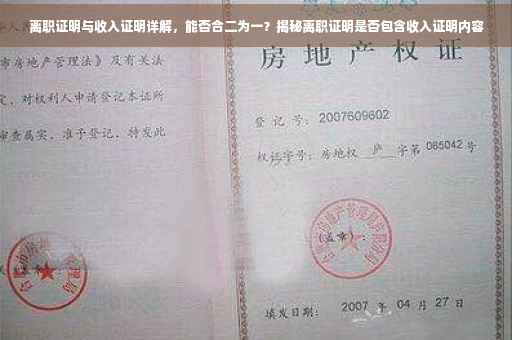 离职证明与收入证明详解，能否合二为一？揭秘离职证明是否包含收入证明内容
市房地产管理法》及有关法
定，对权利人申请登记本证所
审查属实，准予登记，特发此
房地产权证
登记号：2007609602
权证字号：房地权 庐 字第 085042 号
(盖章)：
填发日期： 2007 年 04 月 27 日